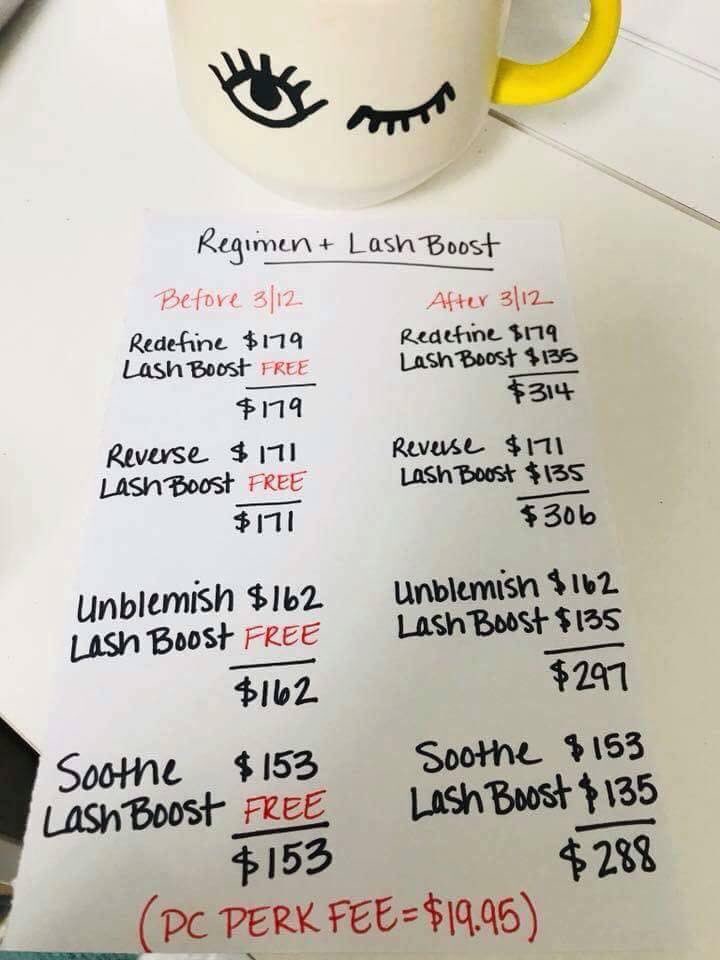 Regimen + Lash Boost
Before 3/12
Redefine $179
Lash Boost FREE
$179
Reverse $171
Lash Boost FREE
$171
Unblemish $162
Lash Boost FREE
$162
Soothe $153
Lash Boost FREE
$153
After 3/12
Redefine $179
Lash Boost $135
$314
Reverse $171
Lash Boost $135
$306
Unblemish $162
Lash Boost $135
$297
Soothe $153
Lash Boost $135
$288
(PC PERK FEE=$19.95)